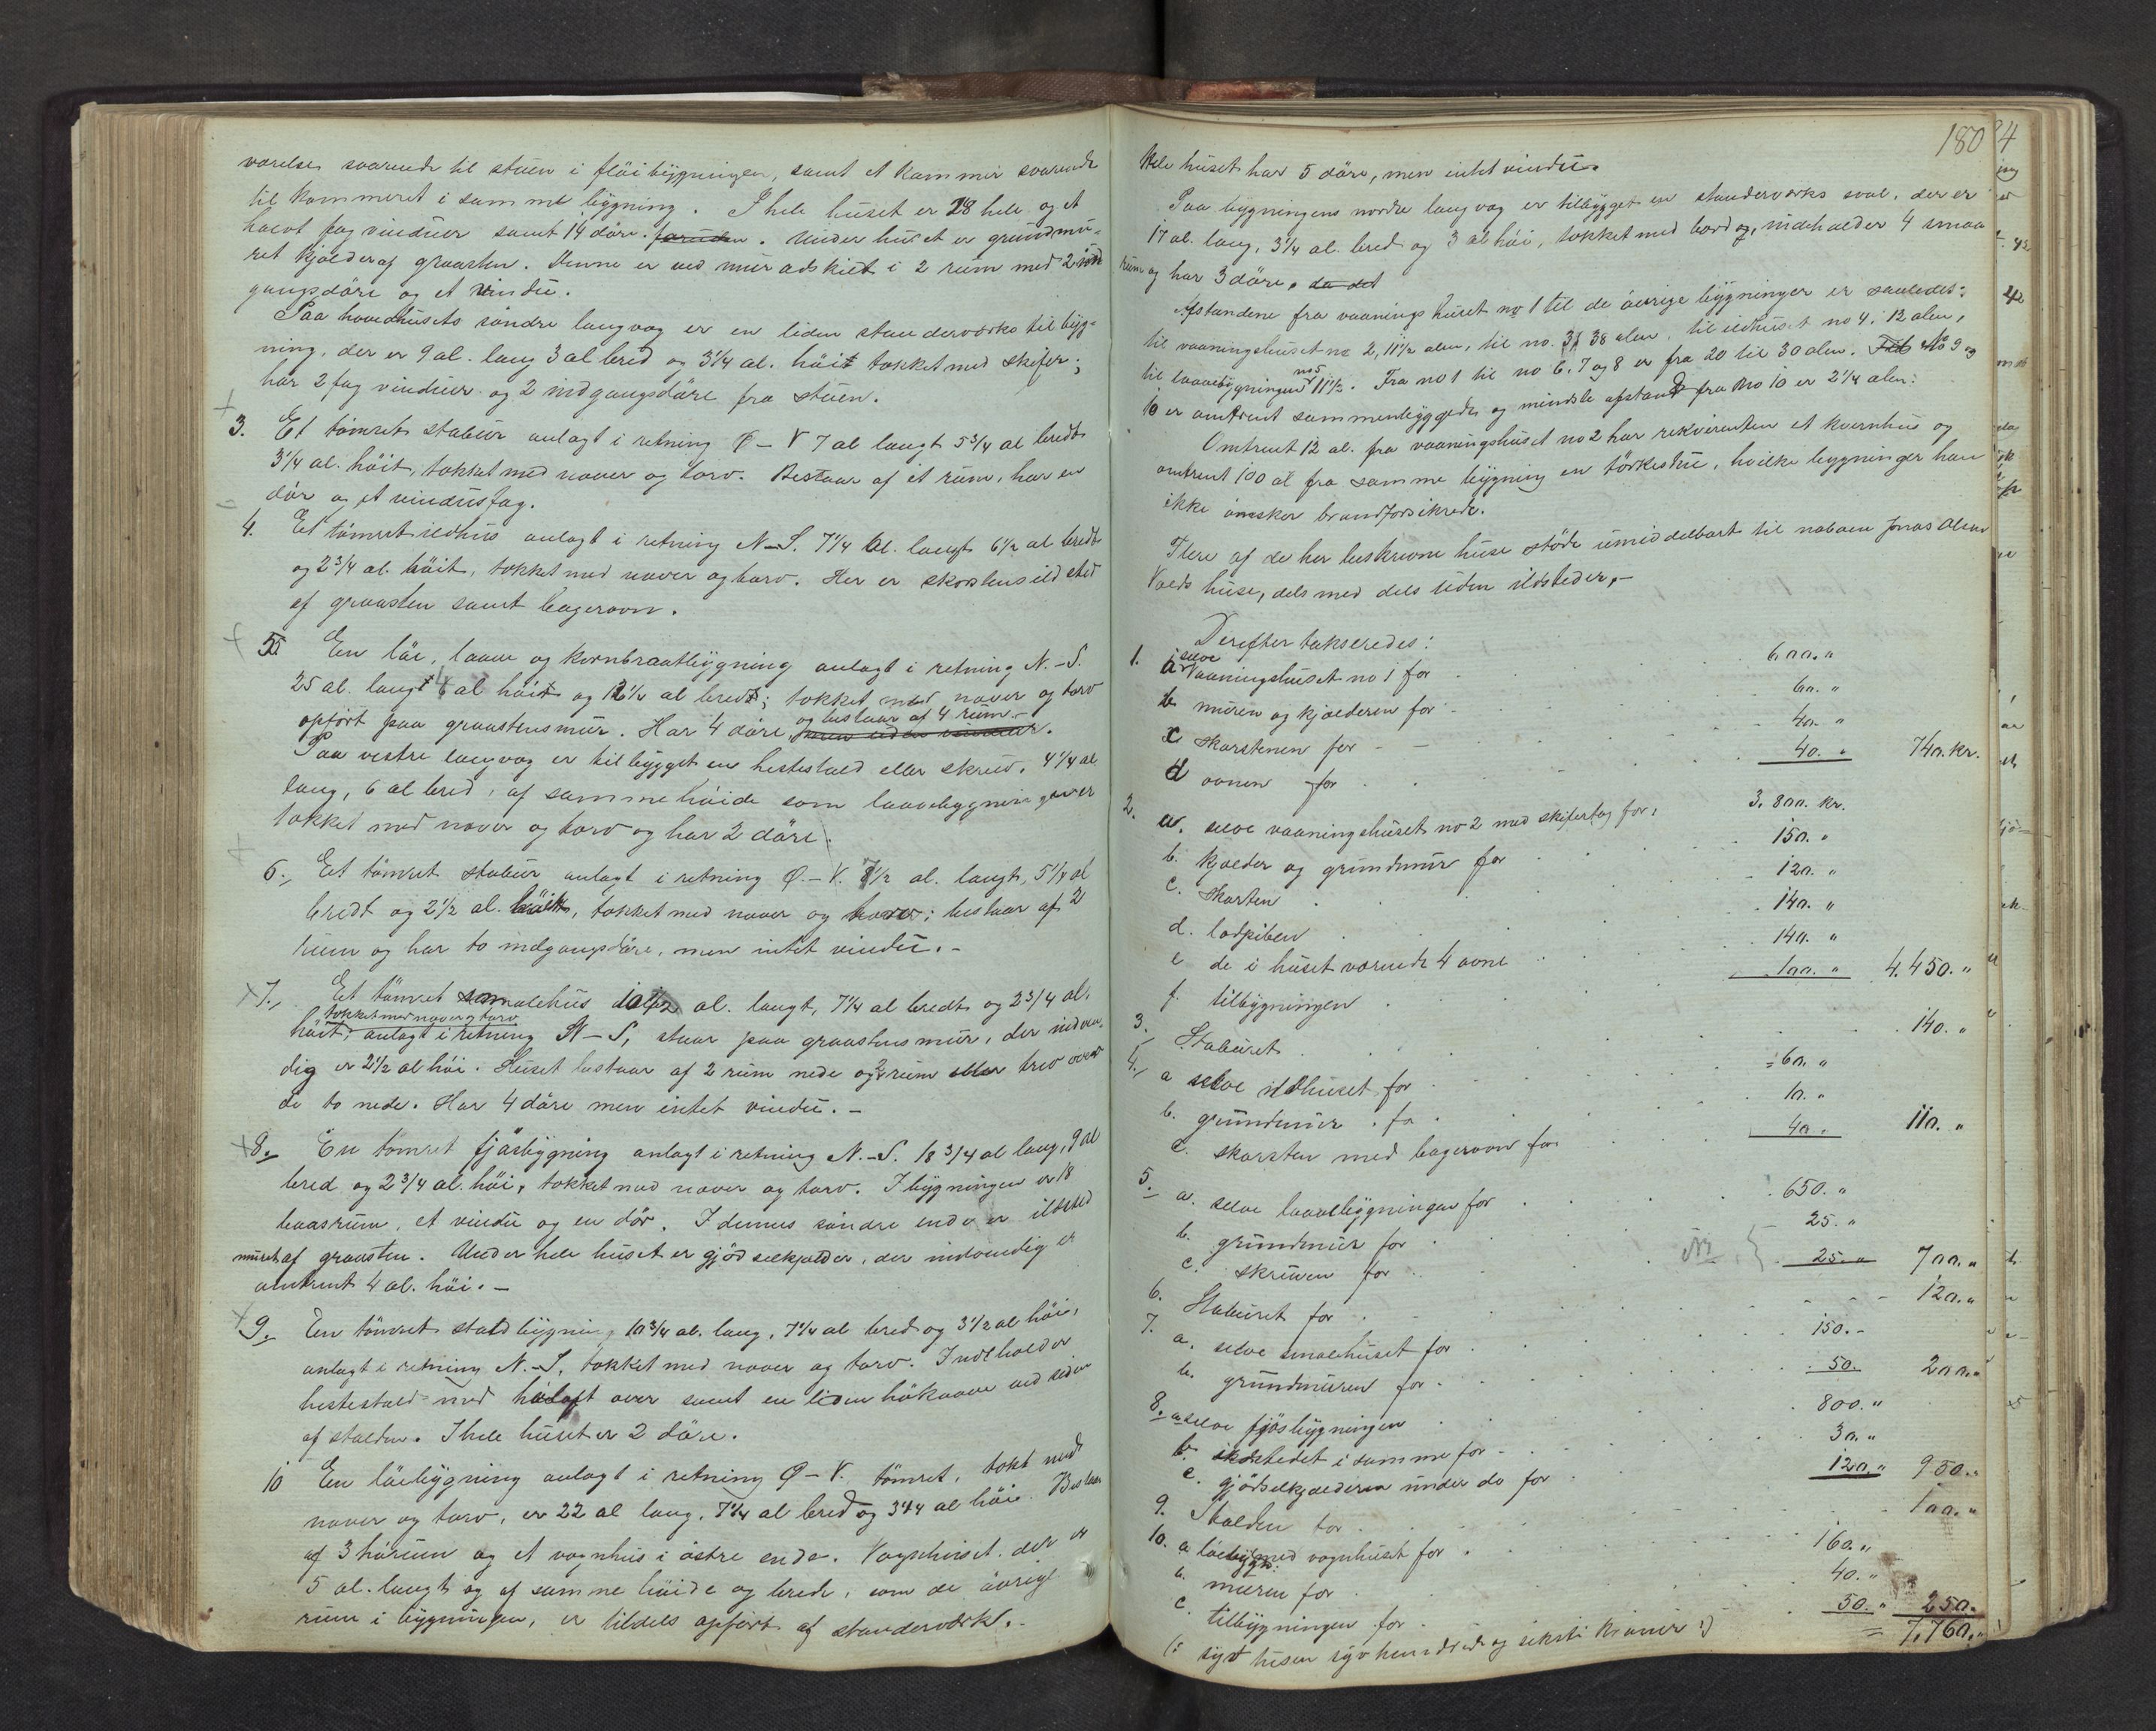 værelse svarende til stuen i flöibygningen, samt et kammer svarende
til kammeret i samme bygning. I hele huset er 28 hele og et
halvt fag vinduer samt 14 döre. foruden. Under huset er grundmu-
ret kjælder af graasten. Denne er ved mur adskilt i 2 rum med 2 ind
gangsdöre og et vindu.
Paa hovedhusets söndre langvæg er en liden standerværks tilbyg-
ning, der er 9 al. lang 3 al bred og 3 1/4 al. höit tækket med skifer;
har 2 fag vinduer og 2 indgangsdöre fra stuen.
3. Et tömret stabur anlagt i retning Ö-V 7 al langt 5 3/4 al bredt
3 1/4 al. höit, tækket med næver og torv. Bestaar af et rum, har en
dör og et vindusfag.
4. Et tömret ildhus anlagt i retning N-S. 7 1/4 al. langt 6 1/2 al bredt
og 2 3/4 al. höit, tækket med næver og torv. Her er skorstensildsted
af graasten samt bagerovn.
5. En lão, laave og kornbraatbygning anlagt i retning N.-S.
25 al. langt 6 al höit og 12 1/2 al bredt; tækket med næver og torv
opfört paa graastensmur. Har 4 döre, og bestaar af 4 rum.-
Paa vestre langvæg er tilbygget en hestestald eller skruv, 4 1/4 al
lang, 6 al bred, af samme höide som laavebygningen er
tækket med næver og torv og har 2 döre.
6., Et tömret stabur anlagt i retning Ö.-V. 7 1/2 al. langt, 5 1/4 al
bredt og 2 1/2 al. höit, tækket med næver og torv; bestaar af 2
rum og har to indgangsdöre, men intet vindu.-
7., Et tömret smalehus 10 1/2 al. langt, 7 1/4 al bredt og 2 3/4 al.
tækket med næver og torv
höit, anlagt i retning N-S, staar paa graastensmur, der indven-
dig er 2 1/2 al höi. Huset bestaar af 2 rum nede og 2 rum eller trev over
de to nede. Har 4 döre men intet vindu.-
8., En tömret fjösbygning anlagt i retning N.-S. 18 3/4 al lang, 9 al
bred og 2 3/4 al. höi, tækket med næver og torv. I bygningen er 18
baasrum, et vindu og en dör. I dennes söndre ende er ildsted
muret af graasten. Under hele huset er gjödselkjælder, der indvendig er
omtrent 4 al. höi.-
9., En tömret staldbygning 10 3/4 al. lang, 7 1/4 al bred og 3 1/2 al höi,
anlagt i retning N.-S, tækket med næver og torv. Indeholder
hestestald med höloft over samt en liden hölaave ved siden
af stalden. I hele huset er 2 döre.
10 En löebygning anlagt i retning Ö-V. tömret, tækt med
næver og torv, er 22 al lang, 7 1/4 al bred og 3 1/4 al höi. Bestaar
af 3 hörum og et vognhus i östre ende. Vognhuset der er
5 al. langt og af samme höide og brede, som de övrige
rum i bygningen, er tildels opfört af standerværk.-
180
Hele huset har 5 döre, men intet vindu.
Paa bygningens nordre langvæg er tilbygget en standerværks sval, der er
17 al. lang, 3 1/4 al. bred og 3 al höi, tækket med bord og, indeholder 4 smaa
rum og har 3 döre. da det
Afstandene fra vaaningshuset no 1 til de övrige bygninger er saaledes:
til vaaningshuset no 2, 11 1/2 alen, til no. 3, 38 alen, til ildhuset no 4, 12 alen,
til laavebygningen no 5 11 1/2. Fra no 1 til no 6, 7 og 8 er fra 20 til 30 alen. No 9 og
10 er omtrent sammenbyggede og mindste afstand fra No 10 er 2 1/4 alen.
Omtrent 12 al. fra vaaningshuset no 2 har rekvirenten et kvernhus og
omtrent 100 al fra samme bygning en törkestue, hvilke bygninger han
ikke önsker brandforsikrede.
Flere af de her beskrevne huse stöde umiddelbart til naboen Jonas Olsen
Volds huse, dels med dels uden ildsteder.-
Derefter takseredes:
1. a selve Vaaningshuset no 1 for 600.„
b muren og kjælderen for 60.„
c skorstenen for 40.„
d ovnen for 40.„ 740. kr.
2. a. selve vaaningshuset no 2 med skifertag for, 3,800. kr.
b. kjælder og grundmur for 150.„
c. skorsten 120.„
d. ladpiben 140.„
e de i huset værende 4 ovne 140.„
f. tilbygningen 100.„ 4.450.„
3. Staburet 140.„
4., a selve ildhuset for 60.„
b. grundmur . for 10.„
c. skorsten med bagerovn for 40.„ 110.„
5. a. selve laavebygningen for 650.„
b. grundmur for 25.„
c. skruven for 25.„ 700.„
6. Staburet for 120.„
7. a. selve smalehuset for 150.-
b. grundmuren for 50. 200.„
8. a selve fjösbygningen 800.„
b. ildstedet i samme for 30.„
c. gjödselkjælderen under do for 120.„ 950.„
9. Stalden for 100.„
10. a löebygn. med vognhuset for 160.„
b. muren for 40.„
c. tilbygningen for 50.„ 250.
(: syv tusen syv hundrede og seksti kroner :) = 7,760.„